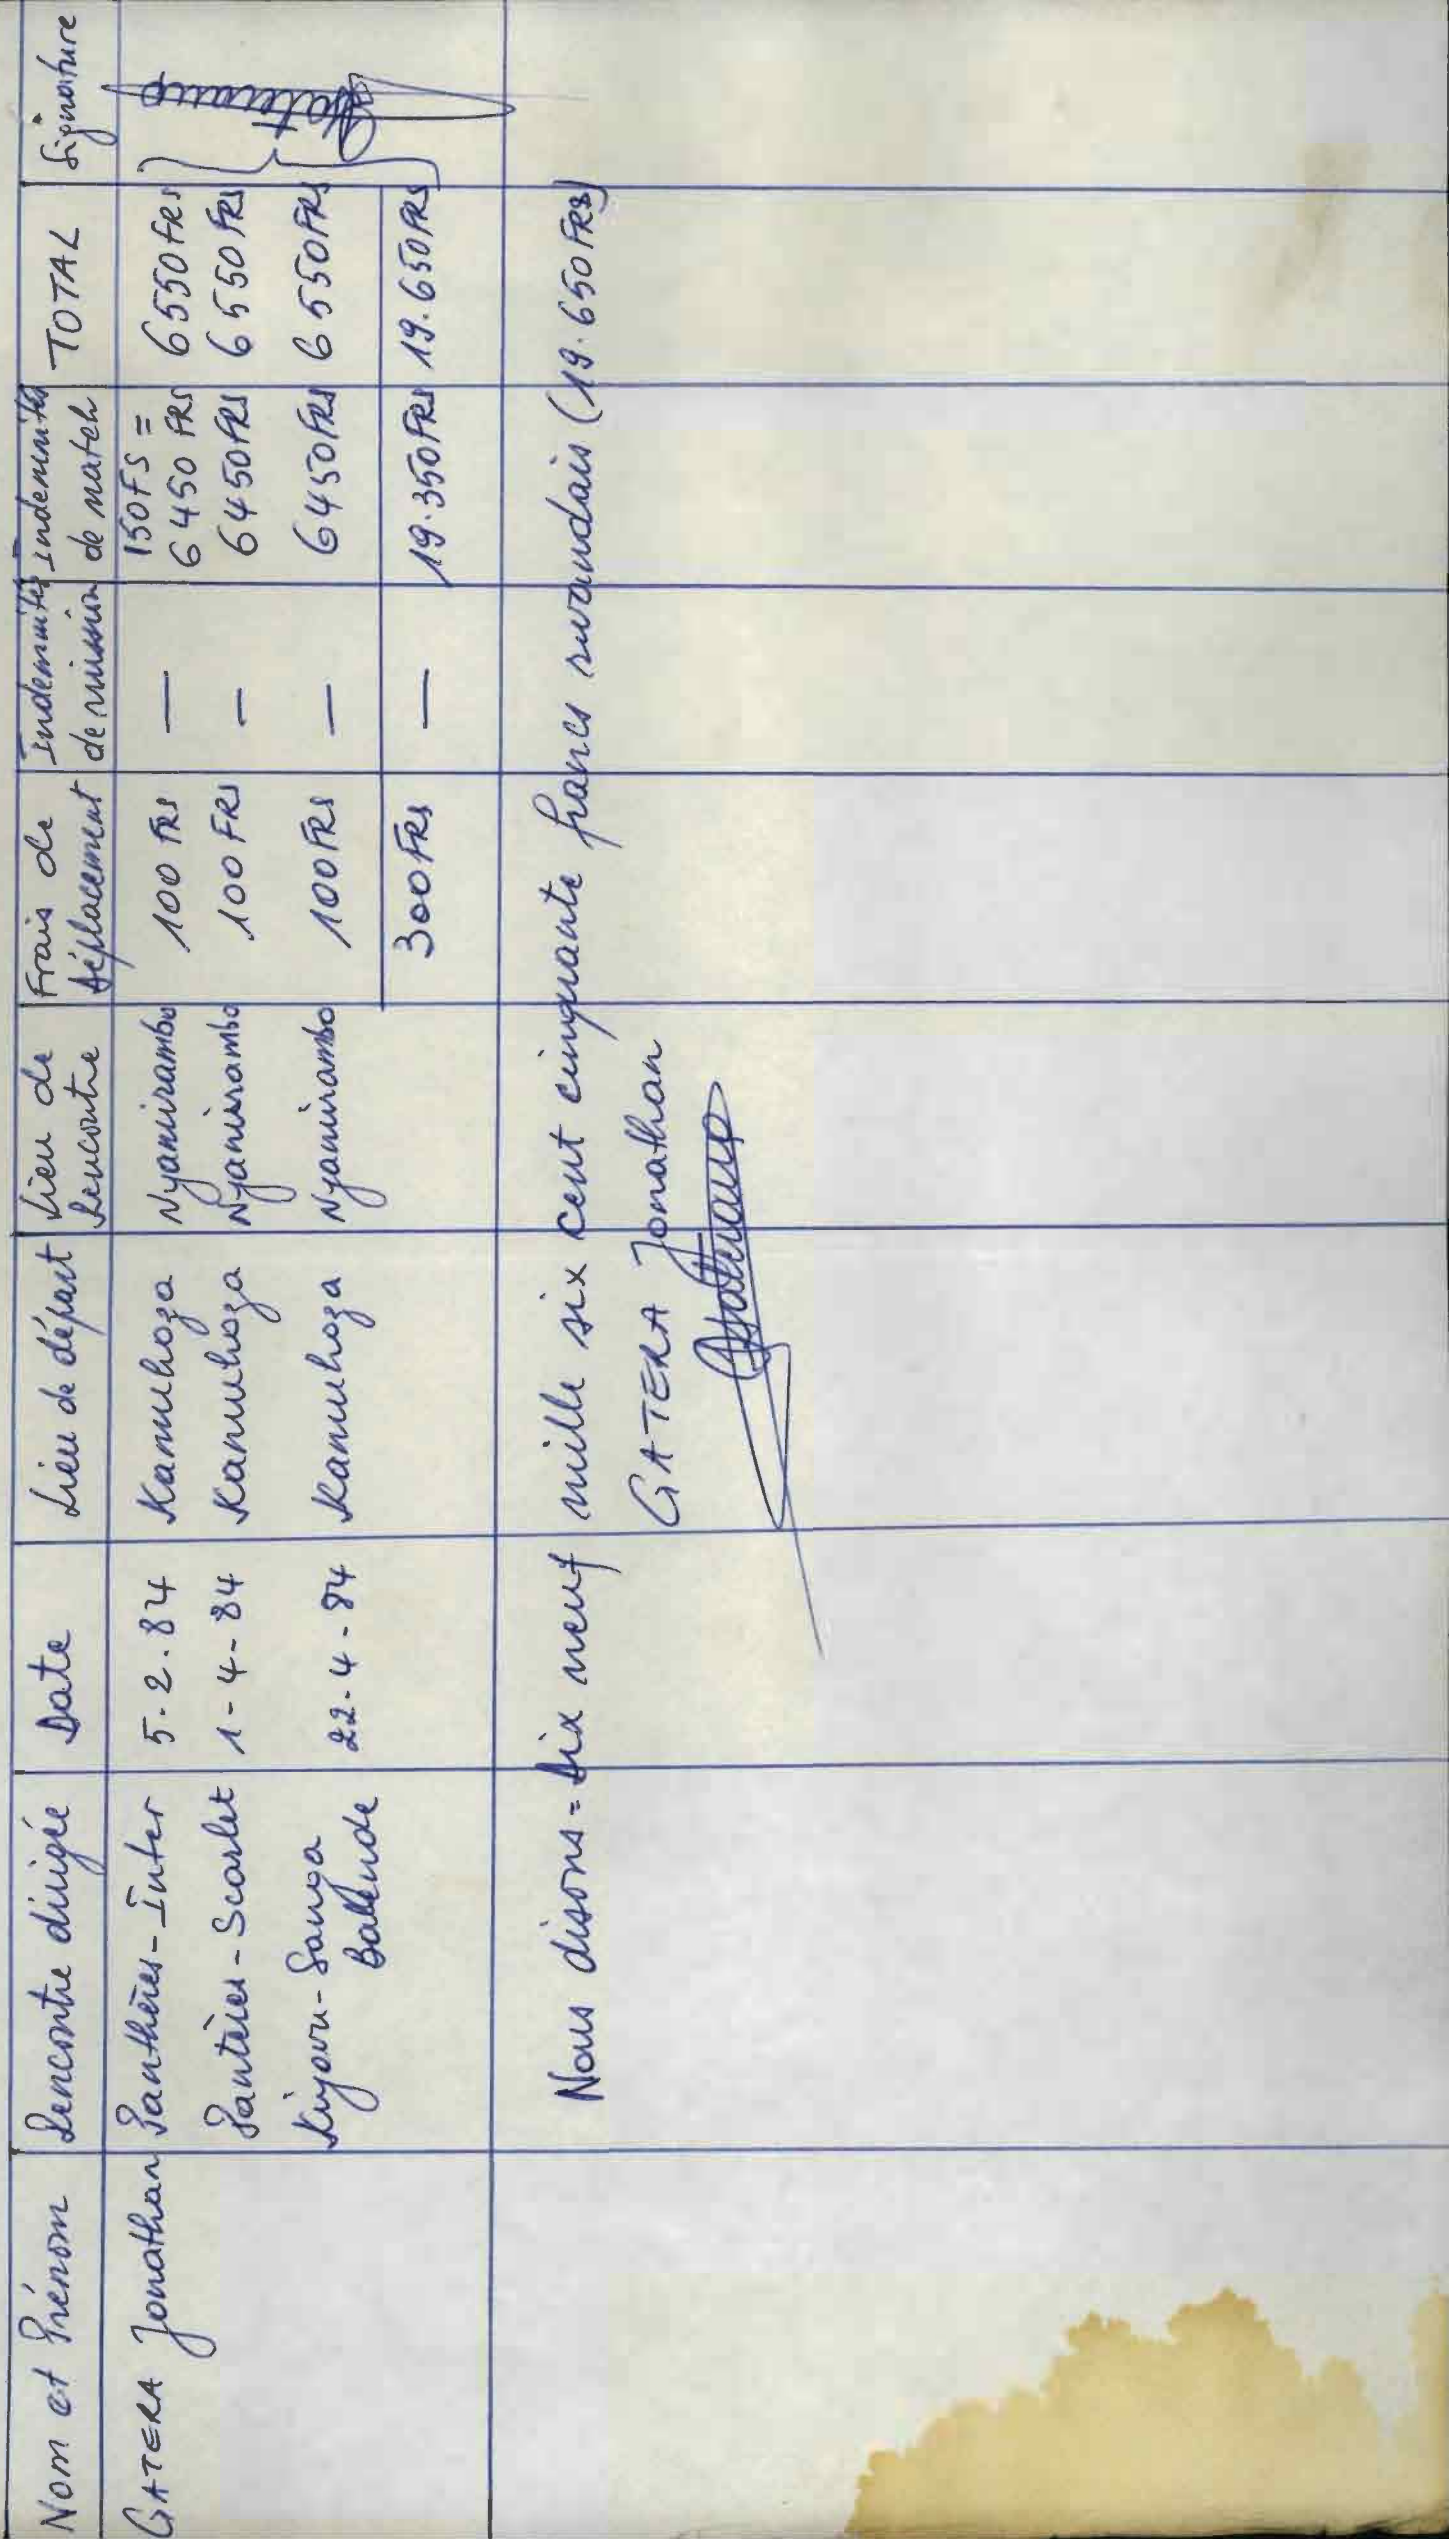 Nom et Prénom Rencontre dirigée Date Lieu de départ Lieu de Rencontre Frais de Déplacement Indemnités de mission Indemnités de match TOTAL Signature
GATERA Jonathan Panthères-Inter 5.2.84 Kamuhoza Nyamirambo 100 FRS — 150FS = 6450 FRS 6550 FRS
Pantères-Scarlet 1-4-84 Kamuhoza Nyamirambo 100 FRS — 6450 FRS 6550 FRS
Kiyovu-Sanga Balende 22-4-84 Kamuhoza Nyamirambo 100 FRS — 6450 FRS 6550 FRS
300 FRS — 19.350 FRS 19.650 FRS
Nous disons = Dix neuf mille six cent cinquante francs rwandais (19.650 FRS)
GATERA Jonathan